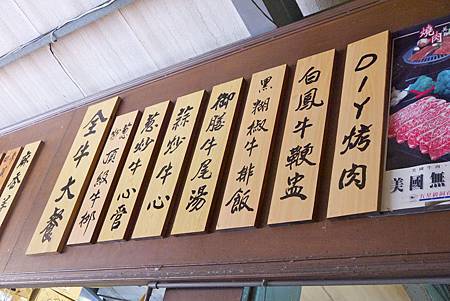 DIY烤肉
白鳳牛鞭盅
黑糊椒牛排飯
御膳牛尾湯
蒜炒牛心
蔥炒牛心管
頂級牛柳
全牛大餐
燒肉
美國無